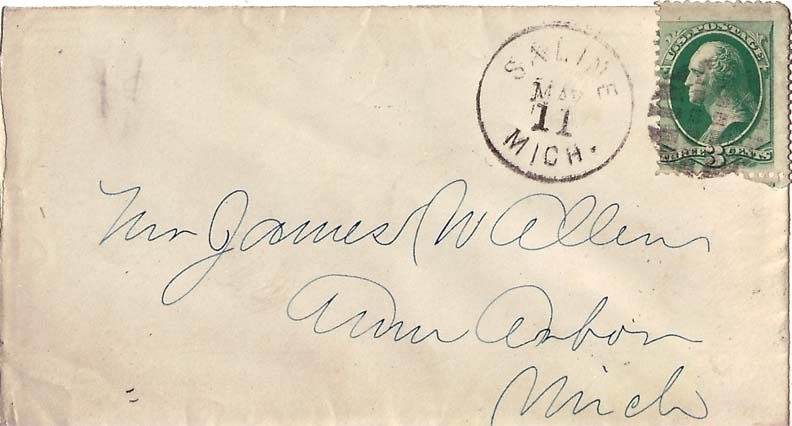 SALINE
MAY
11
MICH.
U.S. POSTAGE
THREE 3 CENTS
Mr James W Allen
Ann Arbor
Mich